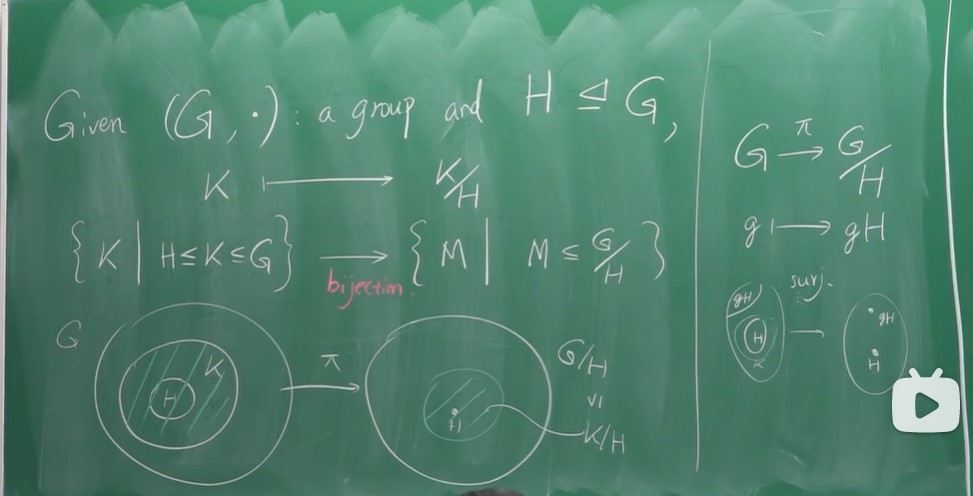 Given (G, ·): a group and H ⊴ G,
K ⟼ K/H
{K | H ≤ K ≤ G} ⟶ {M | M ≤ G/H}
bijection.
G
K
H
π
H
G/H
VI
K/H
G →π G/H
g ⟼ gH
surj.
gH
H
K
gH
H